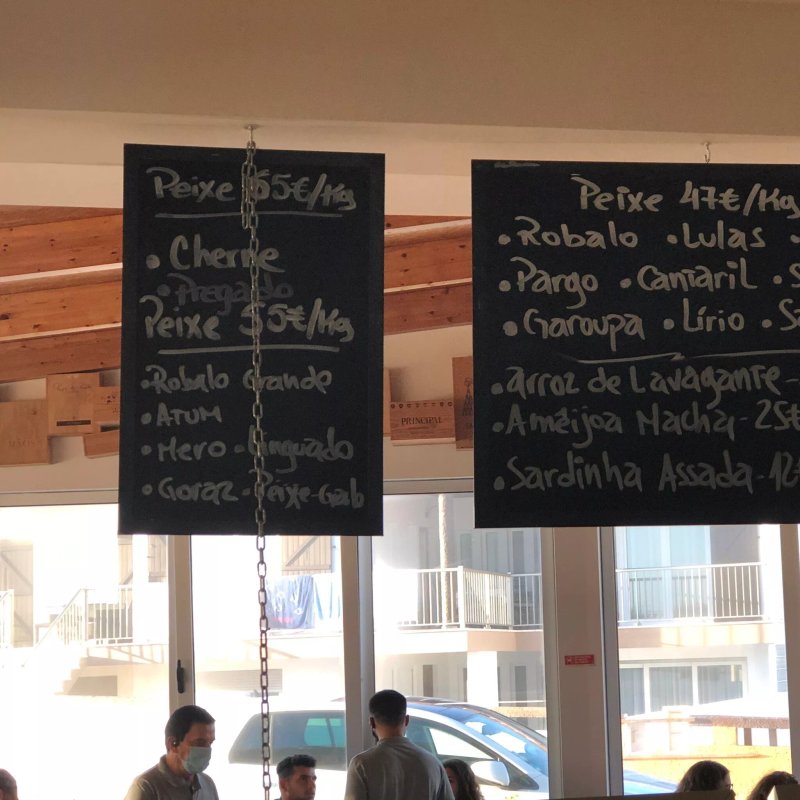 Peixe 65€/Kg
• Cherne
• Pregado
Peixe 55€/Kg
• Robalo Grande
• ATUM
• Mero • Linguado
• Goraz • Peixe-Galo
Peixe 47€/Kg
• Robalo • Lulas •
• Pargo • Cantaril • S
• Garoupa • Lírio • Sa
• Arroz de Lavagante -
• Amêijoa Macha - 25€
• Sardinha Assada - 12€
PRINCIPAL